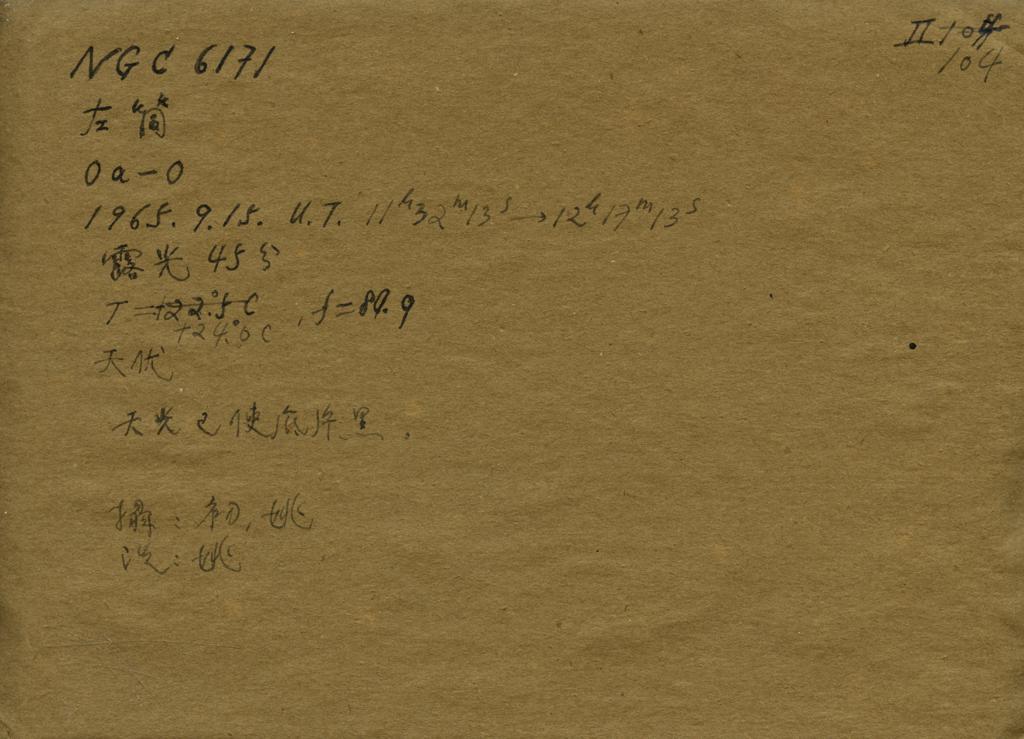 II 104
104
NGC 6171
左筒
Oa-O
1965. 9.15. U.T. 11h32m13s→12h17m13s
露光 45分
T=+22°.5C , f=80.9
+24°.0C
天伏
天光已使底片黑.
攝: 初, 姚
洗: 姚